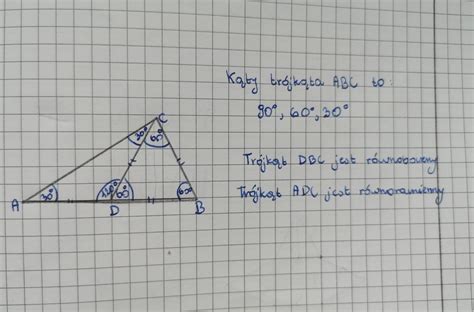 Kąty trójkąta ABC to:
90°, 60°, 30°
Trójkąt DBC jest równoboczny
Trójkąt ADC jest równoramienny
C
30° 60°
30° 120° 60° 60°
A D B